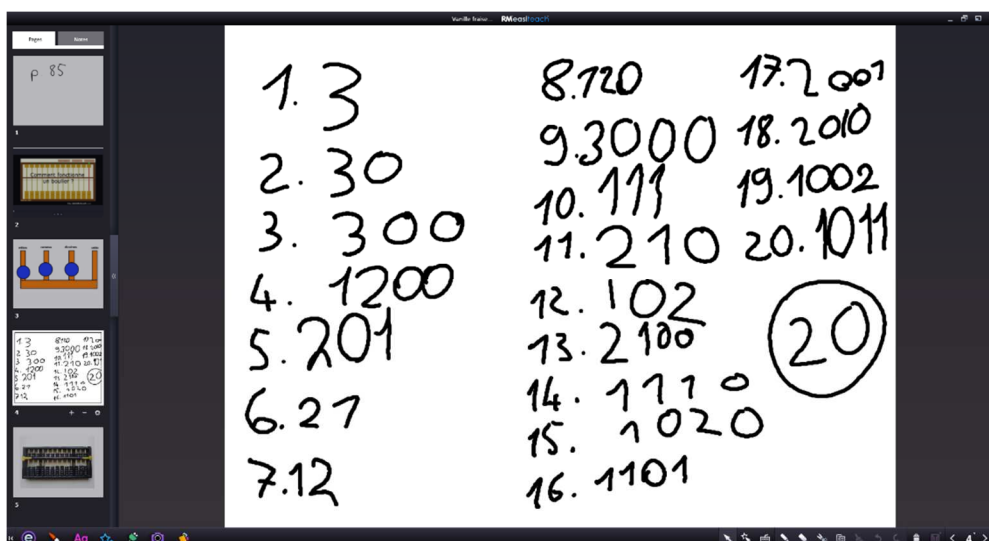 Vanille fraise... RMeasiteach
Pages Notes
p 85
1
Comment fonctionne
un boulier ?
2
3
4
5
1. 3
2. 30
3. 300
4. 1200
5. 201
6. 21
7. 12
8. 120
9. 3000
10. 111
11. 210
12. 102
13. 2100
14. 1110
15. 1020
16. 1101
17. 2001
18. 2010
19. 1002
20. 1011
20
Aa
4